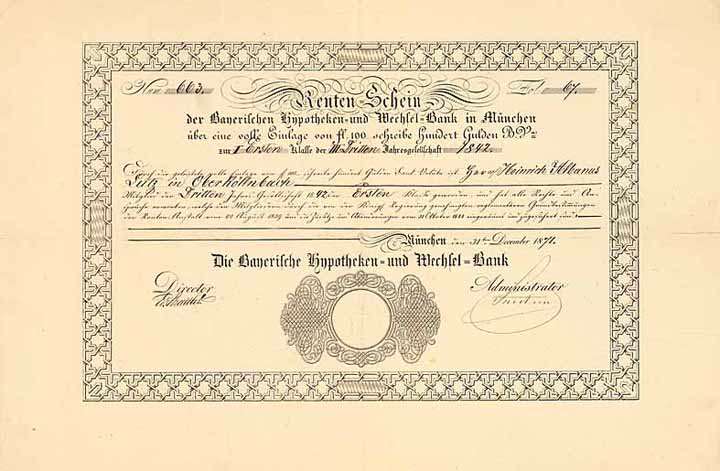 Nro 663. Fol. 67.
Renten-Schein
der Bayerischen Hypotheken- und Wechsel-Bank in München
über eine volle Einlage von fl. 100 schreibe Hundert Gulden
zur I Ersten Klasse der III Dritten Jahresgesellschaft 1842.
Durch die geleistete volle Einlage von fl. 100 schreibe hundert Gulden ist Heinrich Albanus
in
Mitglied der Dritten Jahres-Gesellschaft 1842 in der Ersten Klasse geworden und hat alle Rechte und An-
sprüche erworben, welche den Mitgliedern durch die von der Königl. Regierung genehmigten Grundbestimmungen
der Renten-Anstalt vom August 1839 und die vom Oktober eingeräumt und zugesichert sind
München den 31ten December 1871.
Die Bayerische Hypotheken- und Wechsel-Bank
Director
Administrator